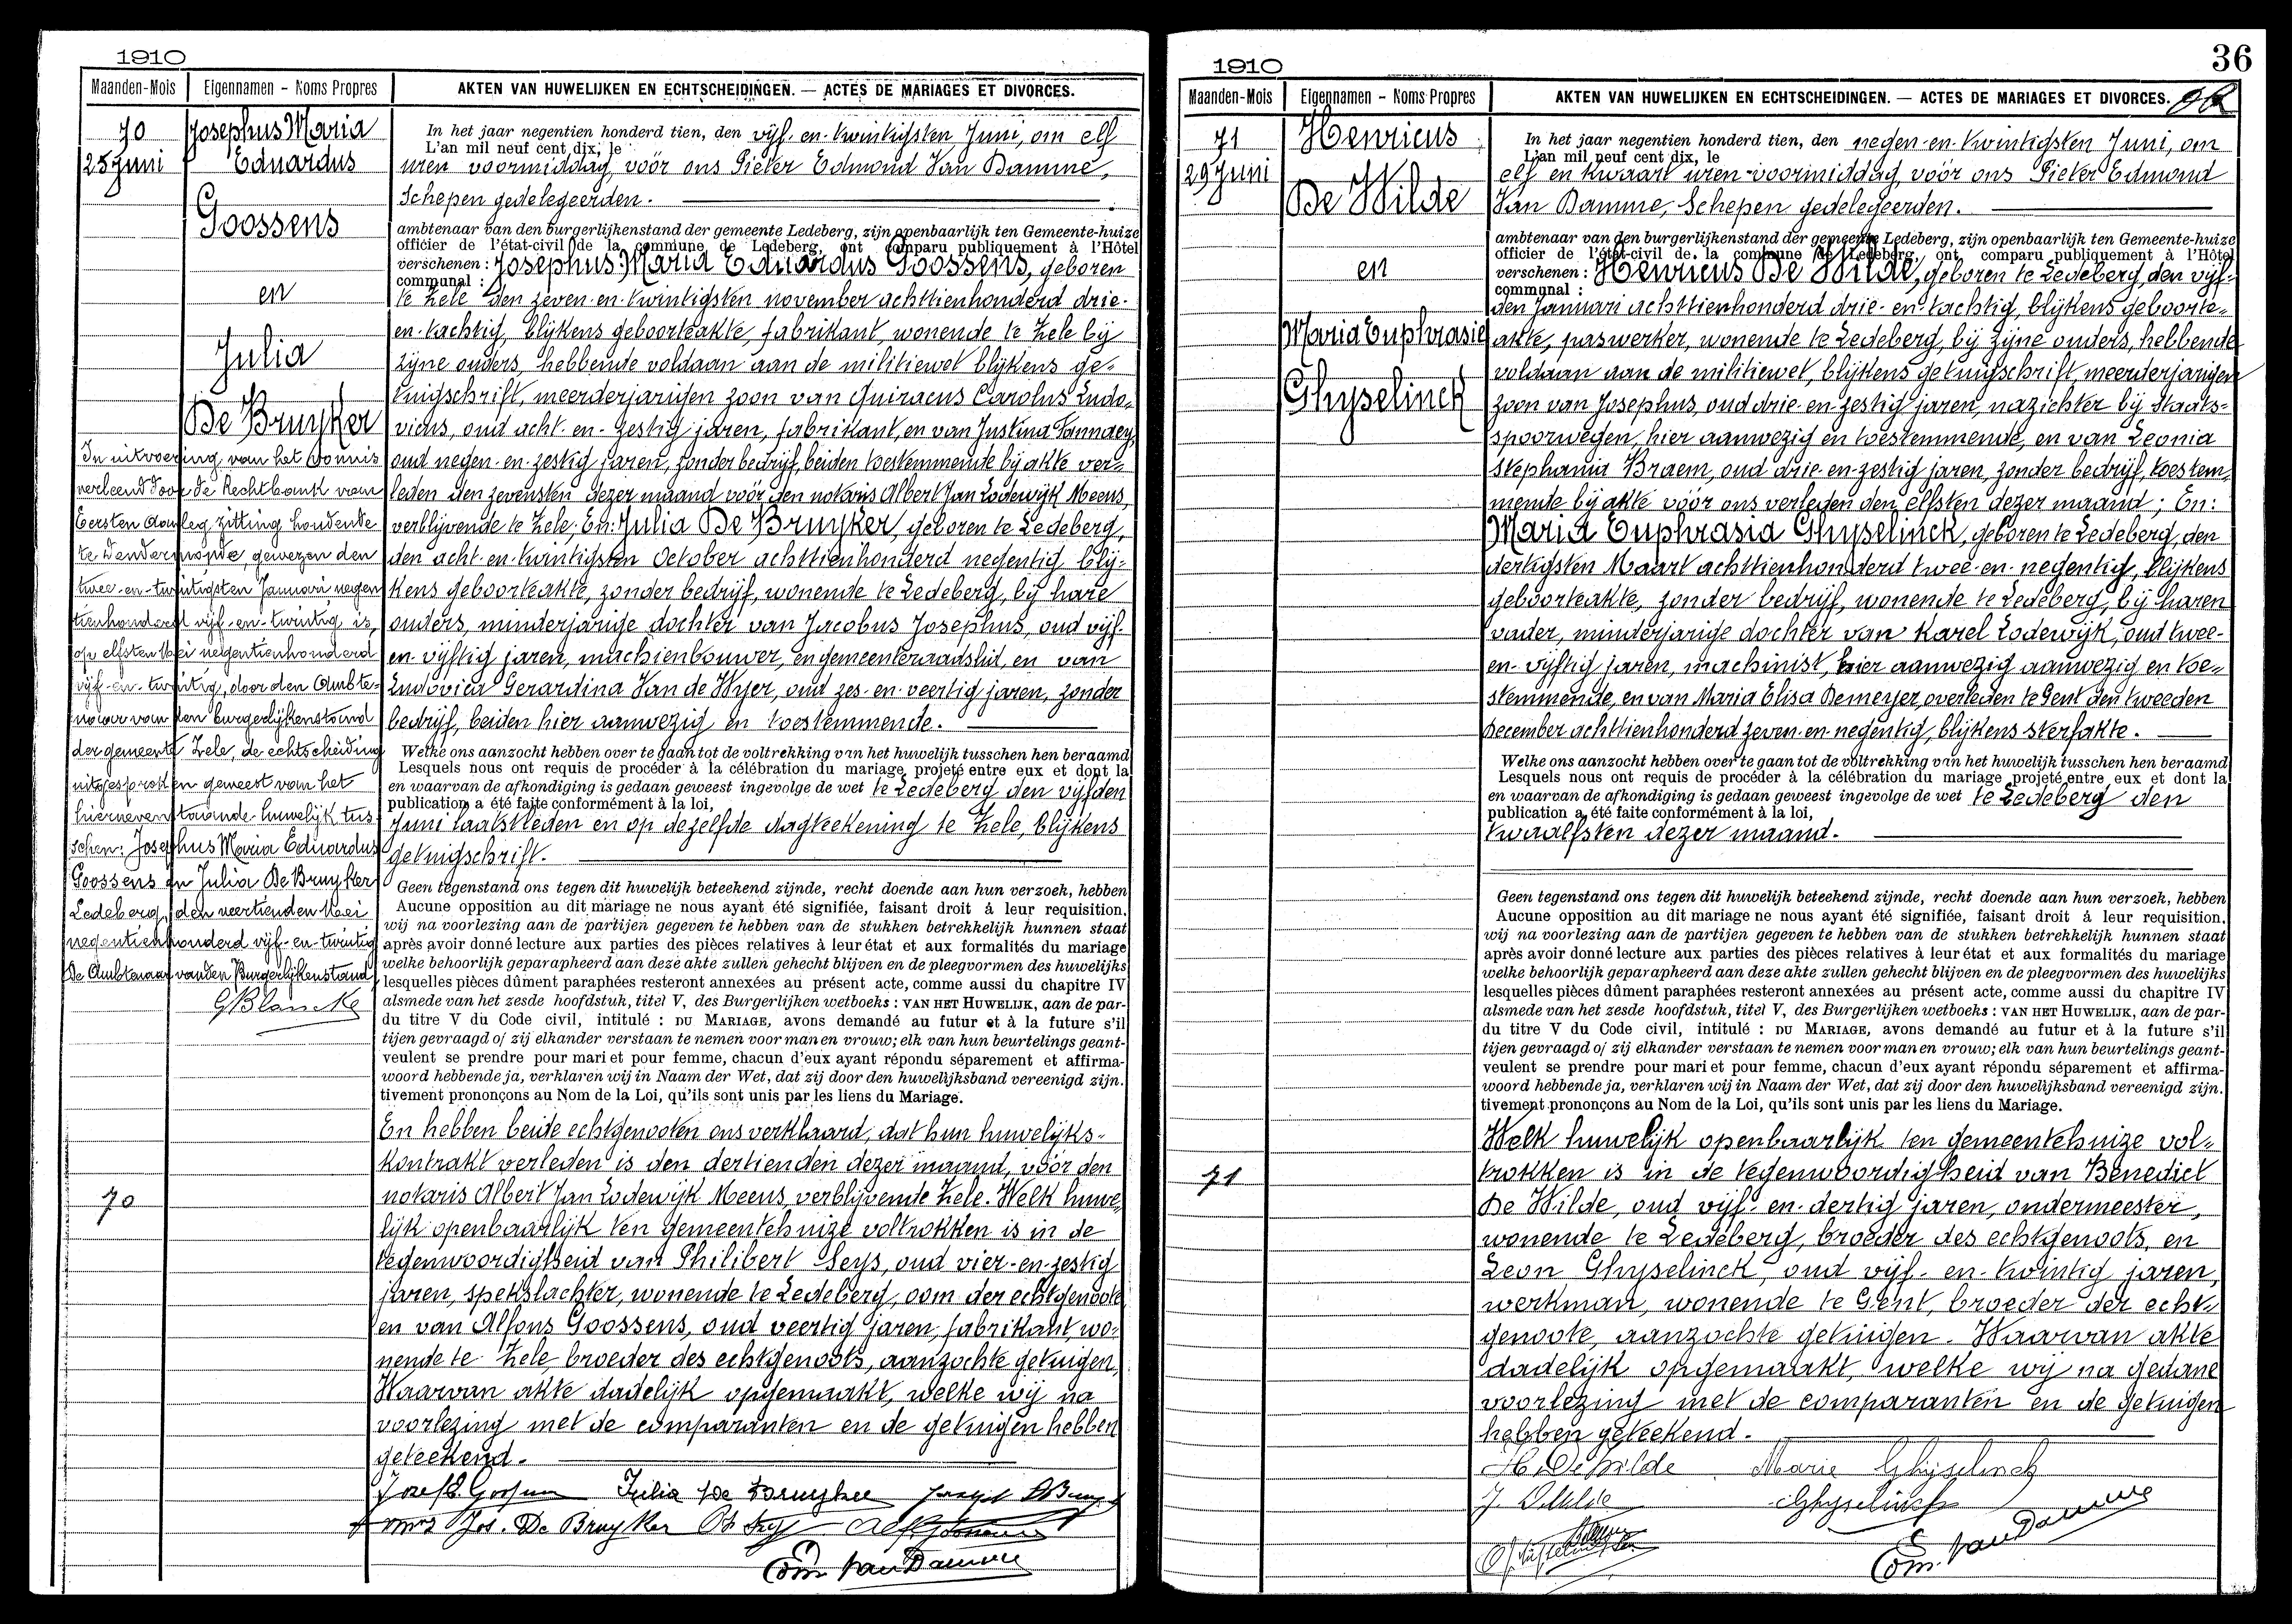 1910
Maanden-Mois
Eigennamen - Noms Propres
AKTEN VAN HUWELIJKEN EN ECHTSCHEIDINGEN. — ACTES DE MARIAGES ET DIVORCES.
70
25 Juni
Josephus Maria
Eduardus
Goossens
en
Julia
De Bruyker
In uitvoering van het vonnis
verleend door de Rechtbank van
Eersten Aanleg zitting houdende
te Dendermonde, gewezen den
twee-en-twintigsten Januari negen
tienhonderd vijf-en-twintig is,
op elfsten Mei negentienhonderd
vijf-en-twintig, door den Ambte-
naar van den burgerlijkenstand
der gemeente Zele, de echtscheiding
uitgesproken geweest van het
hiernevenstaande huwelijk tus
schen: Josephus Maria Eduardus
Goossens en Julia De Bruyker
Ledeberg, den veertienden Mei
negentienhonderd vijf-en-twintig
De Ambtenaar van den Burgerlijkenstand
G Blancke
70
In het jaar negentien honderd tien, den vijf-en-twintigsten Juni, om elf
L'an mil neuf cent dix, le
uren voormiddag, vóór ons Pieter Edmond Van Damme,
Schepen gedelegeerden.
ambtenaar van den burgerlijkenstand der gemeente Ledeberg, zijn openbaarlijk ten Gemeente-huize
officier de l'état-civil de la commune de Ledeberg, ont comparu publiquement à l'Hôtel
verschenen: Josephus Maria Eduardus Goossens, geboren
communal :
te Zele den zeven-en-twintigsten november achttienhonderd drie-
en-tachtig, blijkens geboorteakte, fabrikant, wonende te Zele bij
zijne ouders, hebbende voldaan aan de militiewet blijkens ge-
tuigschrift, meerderjarigen zoon van Quiracus Carolus Ludo-
vicus, oud acht-en-zestig jaren, fabrikant, en van Justina
oud negen-en-zestig jaren, zonder bedrijf, beiden toestemmende bij akte ver-
leden den zevensten dezer maand vóór den notaris Albert Jan Lodewijk Meens,
verblijvende te Zele; En: Julia De Bruyker, geboren te Ledeberg,
den acht-en-twintigsten October achttienhonderd negentig, blij-
kens geboorteakte, zonder bedrijf, wonende te Ledeberg, bij hare
ouders, minderjarige dochter van Jacobus Josephus, oud vijf-
en-vijftig jaren, machienbouwer, en gemeenteraadslid, en van
Ludovica Gerardina Van de Wyer, oud zes-en-veertig jaren, zonder
bedrijf, beiden hier aanwezig en toestemmende.
Welke ons aanzocht hebben over te gaan tot de voltrekking van het huwelijk tusschen hen beraamd
Lesquels nous ont requis de procéder à la célébration du mariage projeté entre eux et dont la
en waarvan de afkondiging is gedaan geweest ingevolge de wet te Ledeberg den vijfden
publication a été faite conformément à la loi,
Juni laatstleden en op dezelfde dagteekening te Zele, blijkens
getuigschrift.
Geen tegenstand ons tegen dit huwelijk beteekend zijnde, recht doende aan hun verzoek, hebben
Aucune opposition au dit mariage ne nous ayant été signifiée, faisant droit à leur requisition,
wij na voorlezing aan de partijen gegeven te hebben van de stukken betrekkelijk hunnen staat
après avoir donné lecture aux parties des pièces relatives à leur état et aux formalités du mariage
welke behoorlijk geparapheerd aan deze akte zullen gehecht blijven en de pleegvormen des huwelijks
lesquelles pièces dûment paraphées resteront annexées au présent acte, comme aussi du chapitre IV
alsmede van het zesde hoofdstuk, titel V, des Burgerlijken wetboeks : VAN HET HUWELIJK, aan de par-
du titre V du Code civil, intitulé : DU MARIAGE, avons demandé au futur et à la future s'il
tijen gevraagd of zij elkander verstaan te nemen voor man en vrouw; elk van hun beurtelings geant-
veulent se prendre pour mari et pour femme, chacun d'eux ayant répondu séparement et affirma-
woord hebbende ja, verklaren wij in Naam der Wet, dat zij door den huwelijksband vereenigd zijn.
tivement prononçons au Nom de la Loi, qu'ils sont unis par les liens du Mariage.
En hebben beide echtgenooten ons verklaard, dat hun huwelijks-
kontrakt verleden is den dertienden dezer maand, vóór den
notaris Albert Jan Lodewijk Meens, verblijvende Zele. Welk huwe-
lijk openbaarlijk ten gemeentehuize voltrokken is in de
tegenwoordigheid van Philibert Seys, oud vier-en-zestig
jaren, spekslachter, wonende te Ledeberg, oom der echtgenoote
en van Alfons Goossens, oud veertig jaren, fabrikant, wo-
nende te Zele, broeder des echtgenoots, aanzochte getuigen,
Waarvan akte dadelijk opgemaakt, welke wij na
voorlezing met de comparanten en de getuigen hebben
geteekend.
Julia De Bruyker
Jos. De Bruyker
Edm. Van Damme
1910
36
Maanden-Mois
Eigennamen - Noms Propres
AKTEN VAN HUWELIJKEN EN ECHTSCHEIDINGEN. — ACTES DE MARIAGES ET DIVORCES.
71
29 Juni
Henricus
De Wilde
en
Maria Euphrasie
Ghyselinck
71
In het jaar negentien honderd tien, den negen-en-twintigsten Juni, om
L'an mil neuf cent dix, le
elf en kwaart uren voormiddag, vóór ons Pieter Edmond
Van Damme, Schepen gedelegeerden.
ambtenaar van den burgerlijkenstand der gemeente Ledeberg, zijn openbaarlijk ten Gemeente-huize
officier de l'état-civil de la commune de Ledeberg, ont comparu publiquement à l'Hôtel
verschenen: Henricus De Wilde, geboren te Ledeberg, den vijf-
communal :
den Januari achttienhonderd drie-en-tachtig, blijkens geboorte-
akte, paswerker, wonende te Ledeberg, bij zijne ouders, hebbende
voldaan aan de militiewet, blijkens getuigschrift, meerderjarigen
zoon van Josephus, oud drie-en-zestig jaren, nazichter bij Staats-
spoorwegen, hier aanwezig en toestemmende, en van Leonia
Stephania Braem, oud drie-en-zestig jaren, zonder bedrijf, toestem-
mende bij akte vóór ons verleden den elfsten dezer maand; En:
Maria Euphrasia Ghyselinck, geboren te Ledeberg, den
dertigsten Maart achttienhonderd twee-en-negentig, blijkens
geboorteakte, zonder bedrijf, wonende te Ledeberg, bij haren
vader, minderjarige dochter van Karel Lodewijk, oud twee-
en-vijftig jaren, machinist, hier aanwezig aanwezig en toe-
stemmende, en van Maria Elisa Demeyer, overleden te Gent den tweeden
December achttienhonderd zeven-en-negentig, blijkens sterfakte.
Welke ons aanzocht hebben over te gaan tot de voltrekking van het huwelijk tusschen hen beraamd
Lesquels nous ont requis de procéder à la célébration du mariage projeté entre eux et dont la
en waarvan de afkondiging is gedaan geweest ingevolge de wet te Ledeberg den
publication a été faite conformément à la loi,
twaalfsten dezer maand.
Geen tegenstand ons tegen dit huwelijk beteekend zijnde, recht doende aan hun verzoek, hebben
Aucune opposition au dit mariage ne nous ayant été signifiée, faisant droit à leur requisition,
wij na voorlezing aan de partijen gegeven te hebben van de stukken betrekkelijk hunnen staat
après avoir donné lecture aux parties des pièces relatives à leur état et aux formalités du mariage
welke behoorlijk geparapheerd aan deze akte zullen gehecht blijven en de pleegvormen des huwelijks
lesquelles pièces dûment paraphées resteront annexées au présent acte, comme aussi du chapitre IV
alsmede van het zesde hoofdstuk, titel V, des Burgerlijken wetboeks : VAN HET HUWELIJK, aan de par-
du titre V du Code civil, intitulé : DU MARIAGE, avons demandé au futur et à la future s'il
tijen gevraagd of zij elkander verstaan te nemen voor man en vrouw; elk van hun beurtelings geant-
veulent se prendre pour mari et pour femme, chacun d'eux ayant répondu séparement et affirma-
woord hebbende ja, verklaren wij in Naam der Wet, dat zij door den huwelijksband vereenigd zijn.
tivement prononçons au Nom de la Loi, qu'ils sont unis par les liens du Mariage.
Welk huwelijk openbaarlijk ten gemeentehuize vol-
trokken is in de tegenwoordigheid van Benedict
De Wilde, oud vijf-en-dertig jaren, ondermeester,
wonende te Ledeberg, broeder des echtgenoots, en
Leon Ghyselinck, oud vijf-en-twintig jaren,
werkman, wonende te Gent, broeder der echt-
genoote, aanzochte getuigen. Waarvan akte
dadelijk opgemaakt, welke wij na gedane
voorlezing met de comparanten en de getuigen
hebben geteekend.
H. De Wilde Marie Ghyselinck
Ghyselinck
Edm. Van Damme